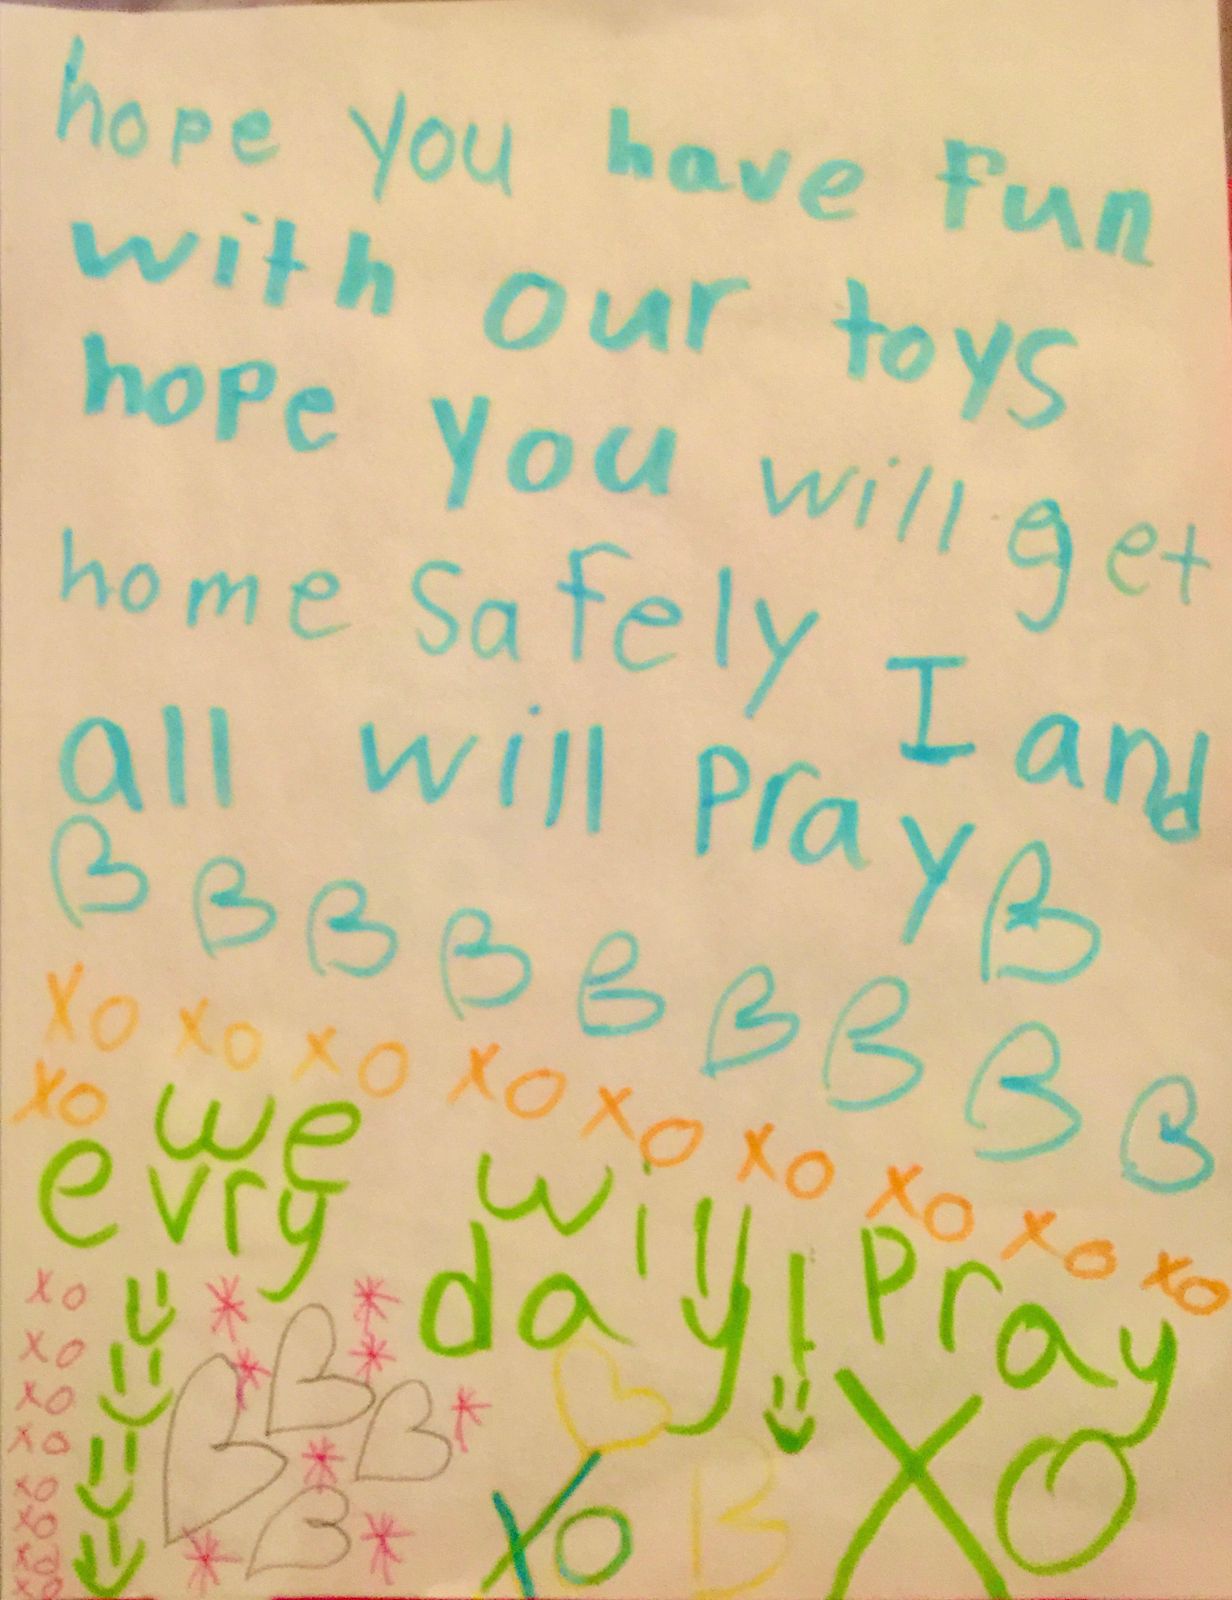 hope you have fun
with our toys
hope you will get
home safely I and
all will pray
xo xo xo xo xo xo xo xo xo
xo we will pray
evry day!
xo
xo
xo
xo
xo
xo
xo
xo
XO XO